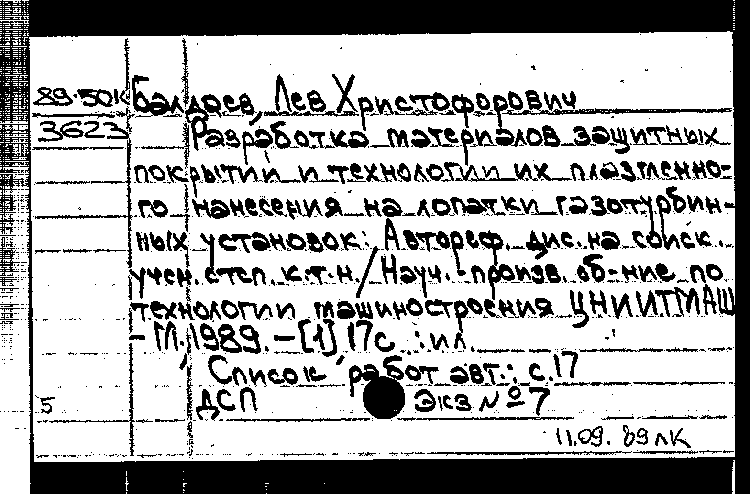 89-50К Балдаев, Лев Христофорович
3623 Разработка материалов защитных
покрытий и технологии их плазменно-
го нанесения на лопатки газотурбин-
ных установок: Автореф. дис. на соиск.
учен. степ. к.т.н. / Науч.-произв. об-ние по
технологии машиностроения ЦНИИТМАШ
- М., 1989. - [1] 17 с. : ил.
Список работ авт.: с. 17
5 ДСП Экз № 7
11.09.89 лк